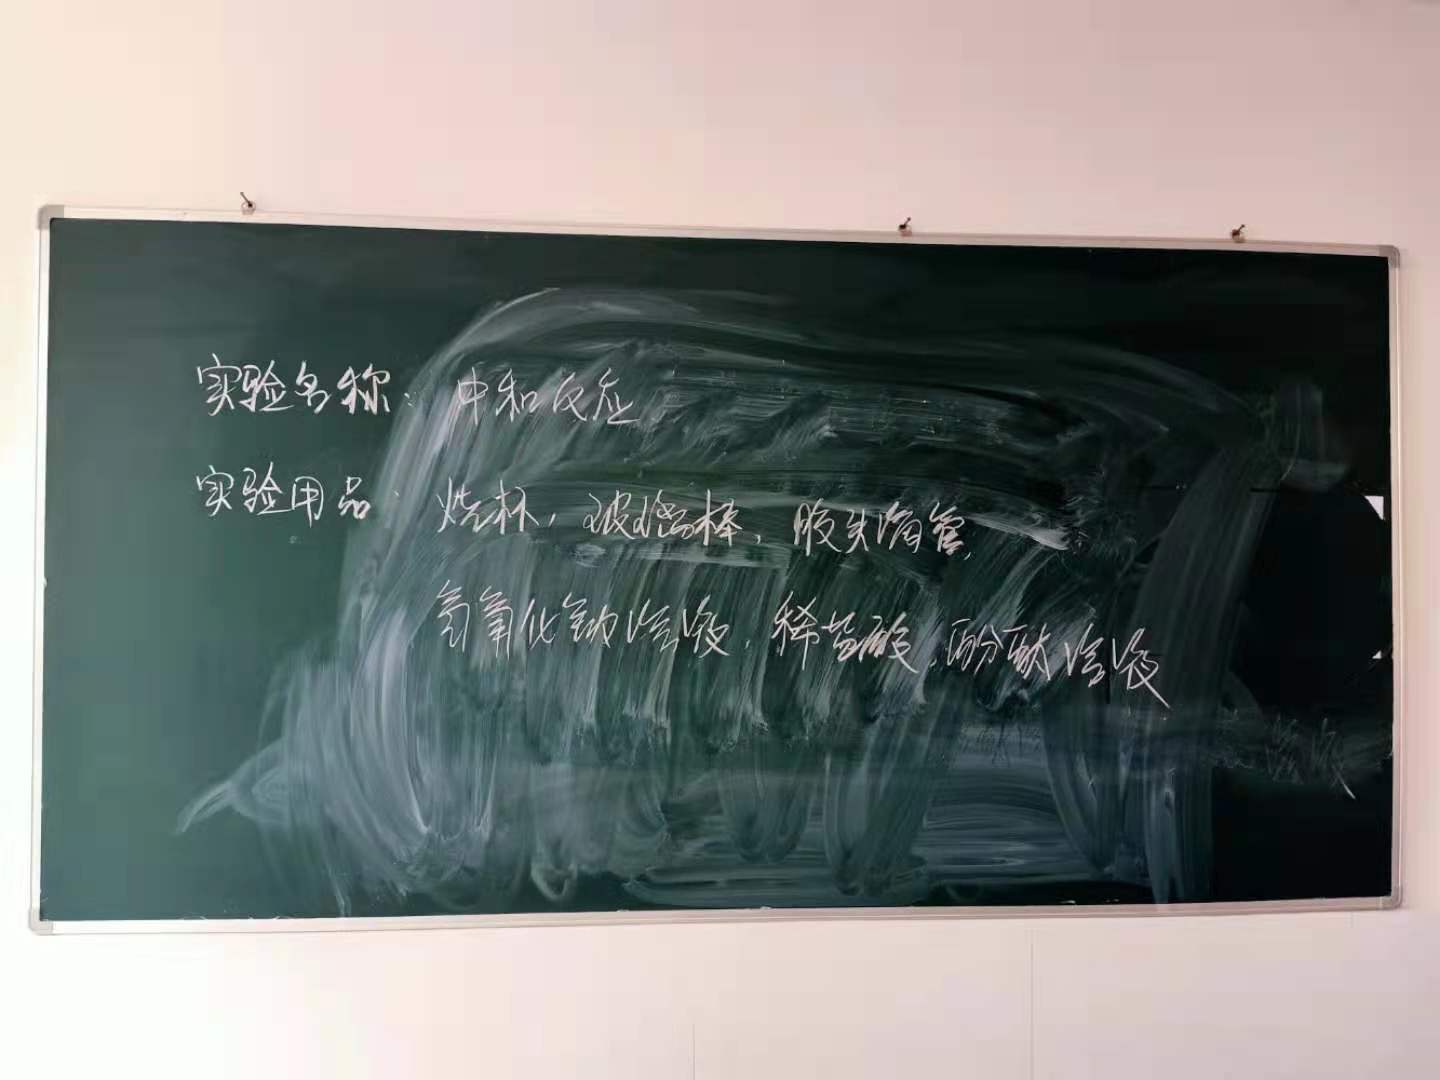 实验名称：中和反应
实验用品：烧杯，玻璃棒，胶头滴管，
氢氧化钠溶液，稀盐酸，酚酞溶液